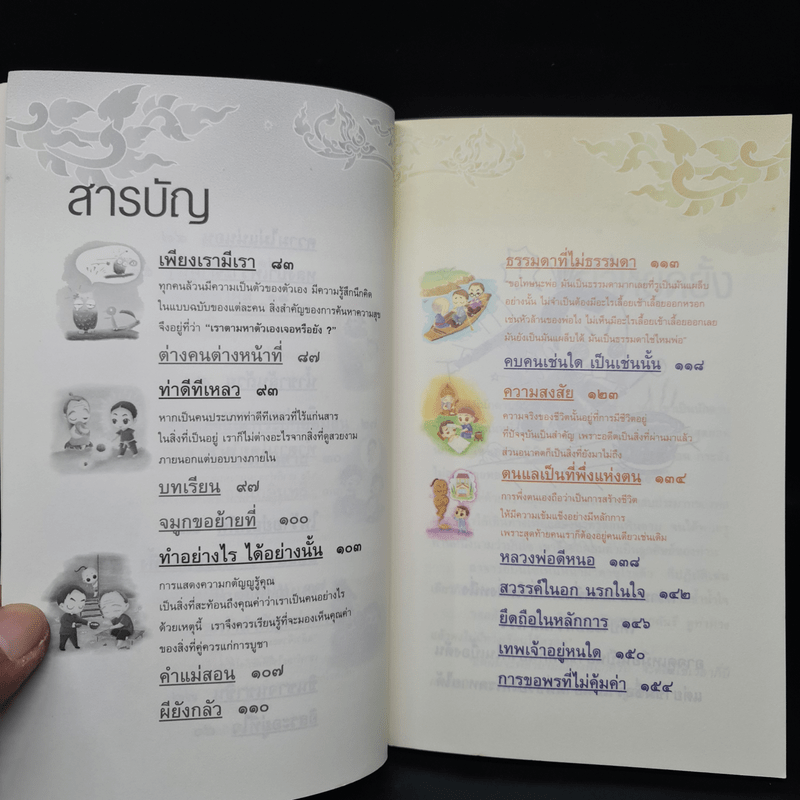 สารบัญ
เพียงเรามีเรา ๘๓
ทุกคนล้วนมีความเป็นตัวของตัวเอง มีความรู้สึกนึกคิด
ในแบบฉบับของแต่ละคน สิ่งสำคัญของการค้นหาความสุข
จึงอยู่ที่ว่า "เราตามหาตัวเองเจอหรือยัง ?"
ต่างคนต่างหน้าที่ ๘๗
ท่าดีทีเหลว ๙๓
หากเป็นคนประเภทท่าดีทีเหลวที่ไร้แก่นสาร
ในสิ่งที่เป็นอยู่ เราก็ไม่ต่างอะไรจากสิ่งที่ดูสวยงาม
ภายนอกแต่บอบบางภายใน
บทเรียน ๙๗
จมูกขอย้ายที่ ๑๐๐
ทำอย่างไร ได้อย่างนั้น ๑๐๓
การแสดงความกตัญญูรู้คุณ
เป็นสิ่งที่สะท้อนถึงคุณค่าว่าเราเป็นคนอย่างไร
ด้วยเหตุนี้ เราจึงควรเรียนรู้ที่จะมองเห็นคุณค่า
ของสิ่งที่คู่ควรแก่การบูชา
คำแม่สอน ๑๐๗
ผียังกลัว ๑๑๐
ธรรมดาที่ไม่ธรรมดา ๑๑๓
"ขอโทษนะพ่อ มันเป็นธรรมดามากเลยที่งูเป็นมันแผล็บ
อย่างนั้น ไม่จำเป็นต้องมีอะไรเลื้อยเข้าเลื้อยออกหรอก
เช่นหัวล้านของพ่อไง ไม่เห็นมีอะไรเลื้อยเข้าเลื้อยออกเลย
มันยังเป็นมันแผล็บได้ มันเป็นธรรมดาใช่ไหมพ่อ"
คบคนเช่นใด เป็นเช่นนั้น ๑๑๘
ความสงสัย ๑๒๓
ความจริงของชีวิตนั้นอยู่ที่การมีชีวิตอยู่
ที่ปัจจุบันเป็นสำคัญ เพราะอดีตเป็นสิ่งที่ผ่านมาแล้ว
ส่วนอนาคตก็เป็นสิ่งที่ยังมาไม่ถึง
ตนแลเป็นที่พึ่งแห่งตน ๑๓๔
การพึ่งตนเองถือว่าเป็นการสร้างชีวิต
ให้มีความเข้มแข็งอย่างมีหลักการ
เพราะสุดท้ายคนเราก็ต้องอยู่คนเดียวเช่นเดิม
หลวงพ่อดีหนอ ๑๓๘
สวรรค์ในอก นรกในใจ ๑๔๒
ยึดถือในหลักการ ๑๔๖
เทพเจ้าอยู่หนใด ๑๕๐
การขอพรที่ไม่คุ้มค่า ๑๕๔